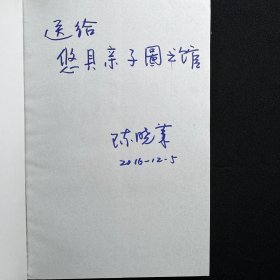 送给
悠贝亲子圖书馆
陈晓華
2016-12-5